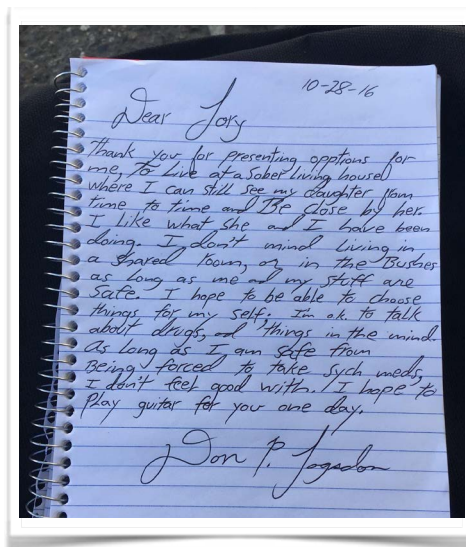 10-28-16
Dear Jory
Thank you for presenting opptions for
me, to Live at a sober living house
where I can still see my daughter from
time to time and Be close by her.
I Like what she and I have been
doing. I don't mind Living in
a shared room, or in the Bushes
as long as me and my stuff are
Safe. I hope to be able to choose
things for my self. I'm ok. to talk
about drugs, and things in the mind.
As long as I am safe from
Being forced to take sych meds,
I don't feel good with. I hope to
Play guitar for you one day.
Don P. Logsdon